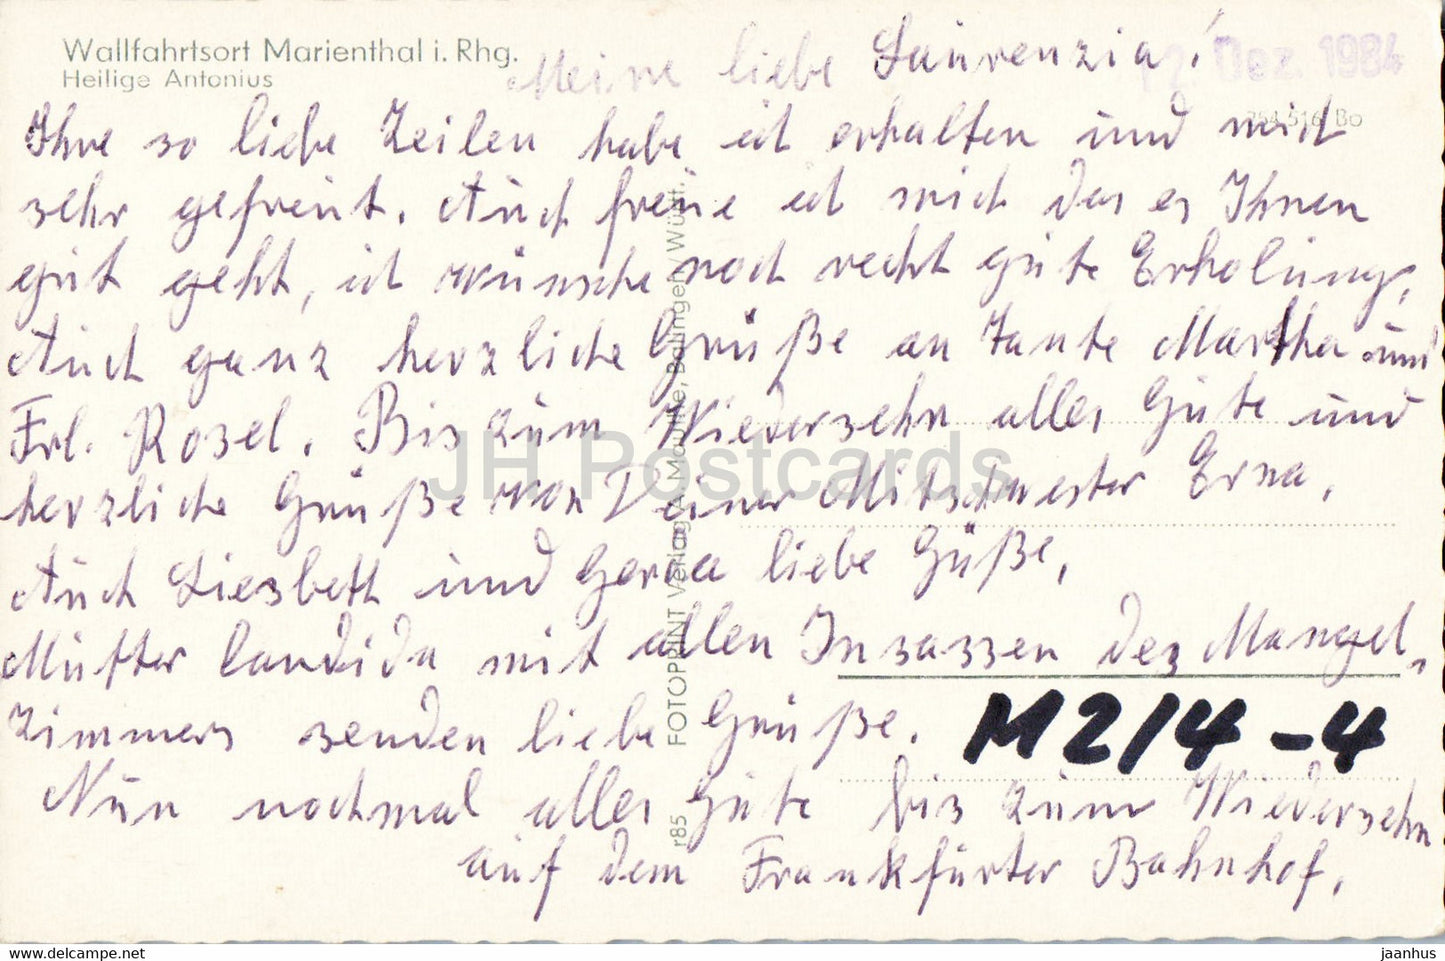 Wallfahrtsort Marienthal i. Rhg.
Heilige Antonius
Meine liebe Laurenzia!
Dez. 1984
254 516 Bo
Ihre so liebe Zeilen habe ich erhalten und mich
sehr gefreut. Auch freue ich mich das es Ihnen
gut geht, ich wünsche noch recht gute Erholung,
Auch ganz herzliche Grüße an Tante Martha und
Frl. Rosel. Bis zum Wiedersehn alles Gute und
herzliche Grüße von Deiner Mitschwester Erna.
Auch Liesbett und Gerda liebe Güße,
Mutter Candida mit allen Insassen des Mangel-
zimmers senden liebe Grüße.
M2/4-4
Nun nochmal alles Gute bis zum Wiedersehn
auf dem Frankfurter Bahnhof.
r85 FOTOPRINT Verlag A. Mauthe, Balingen/Württ.
JH Postcards
www.delcampe.net
jaanhus